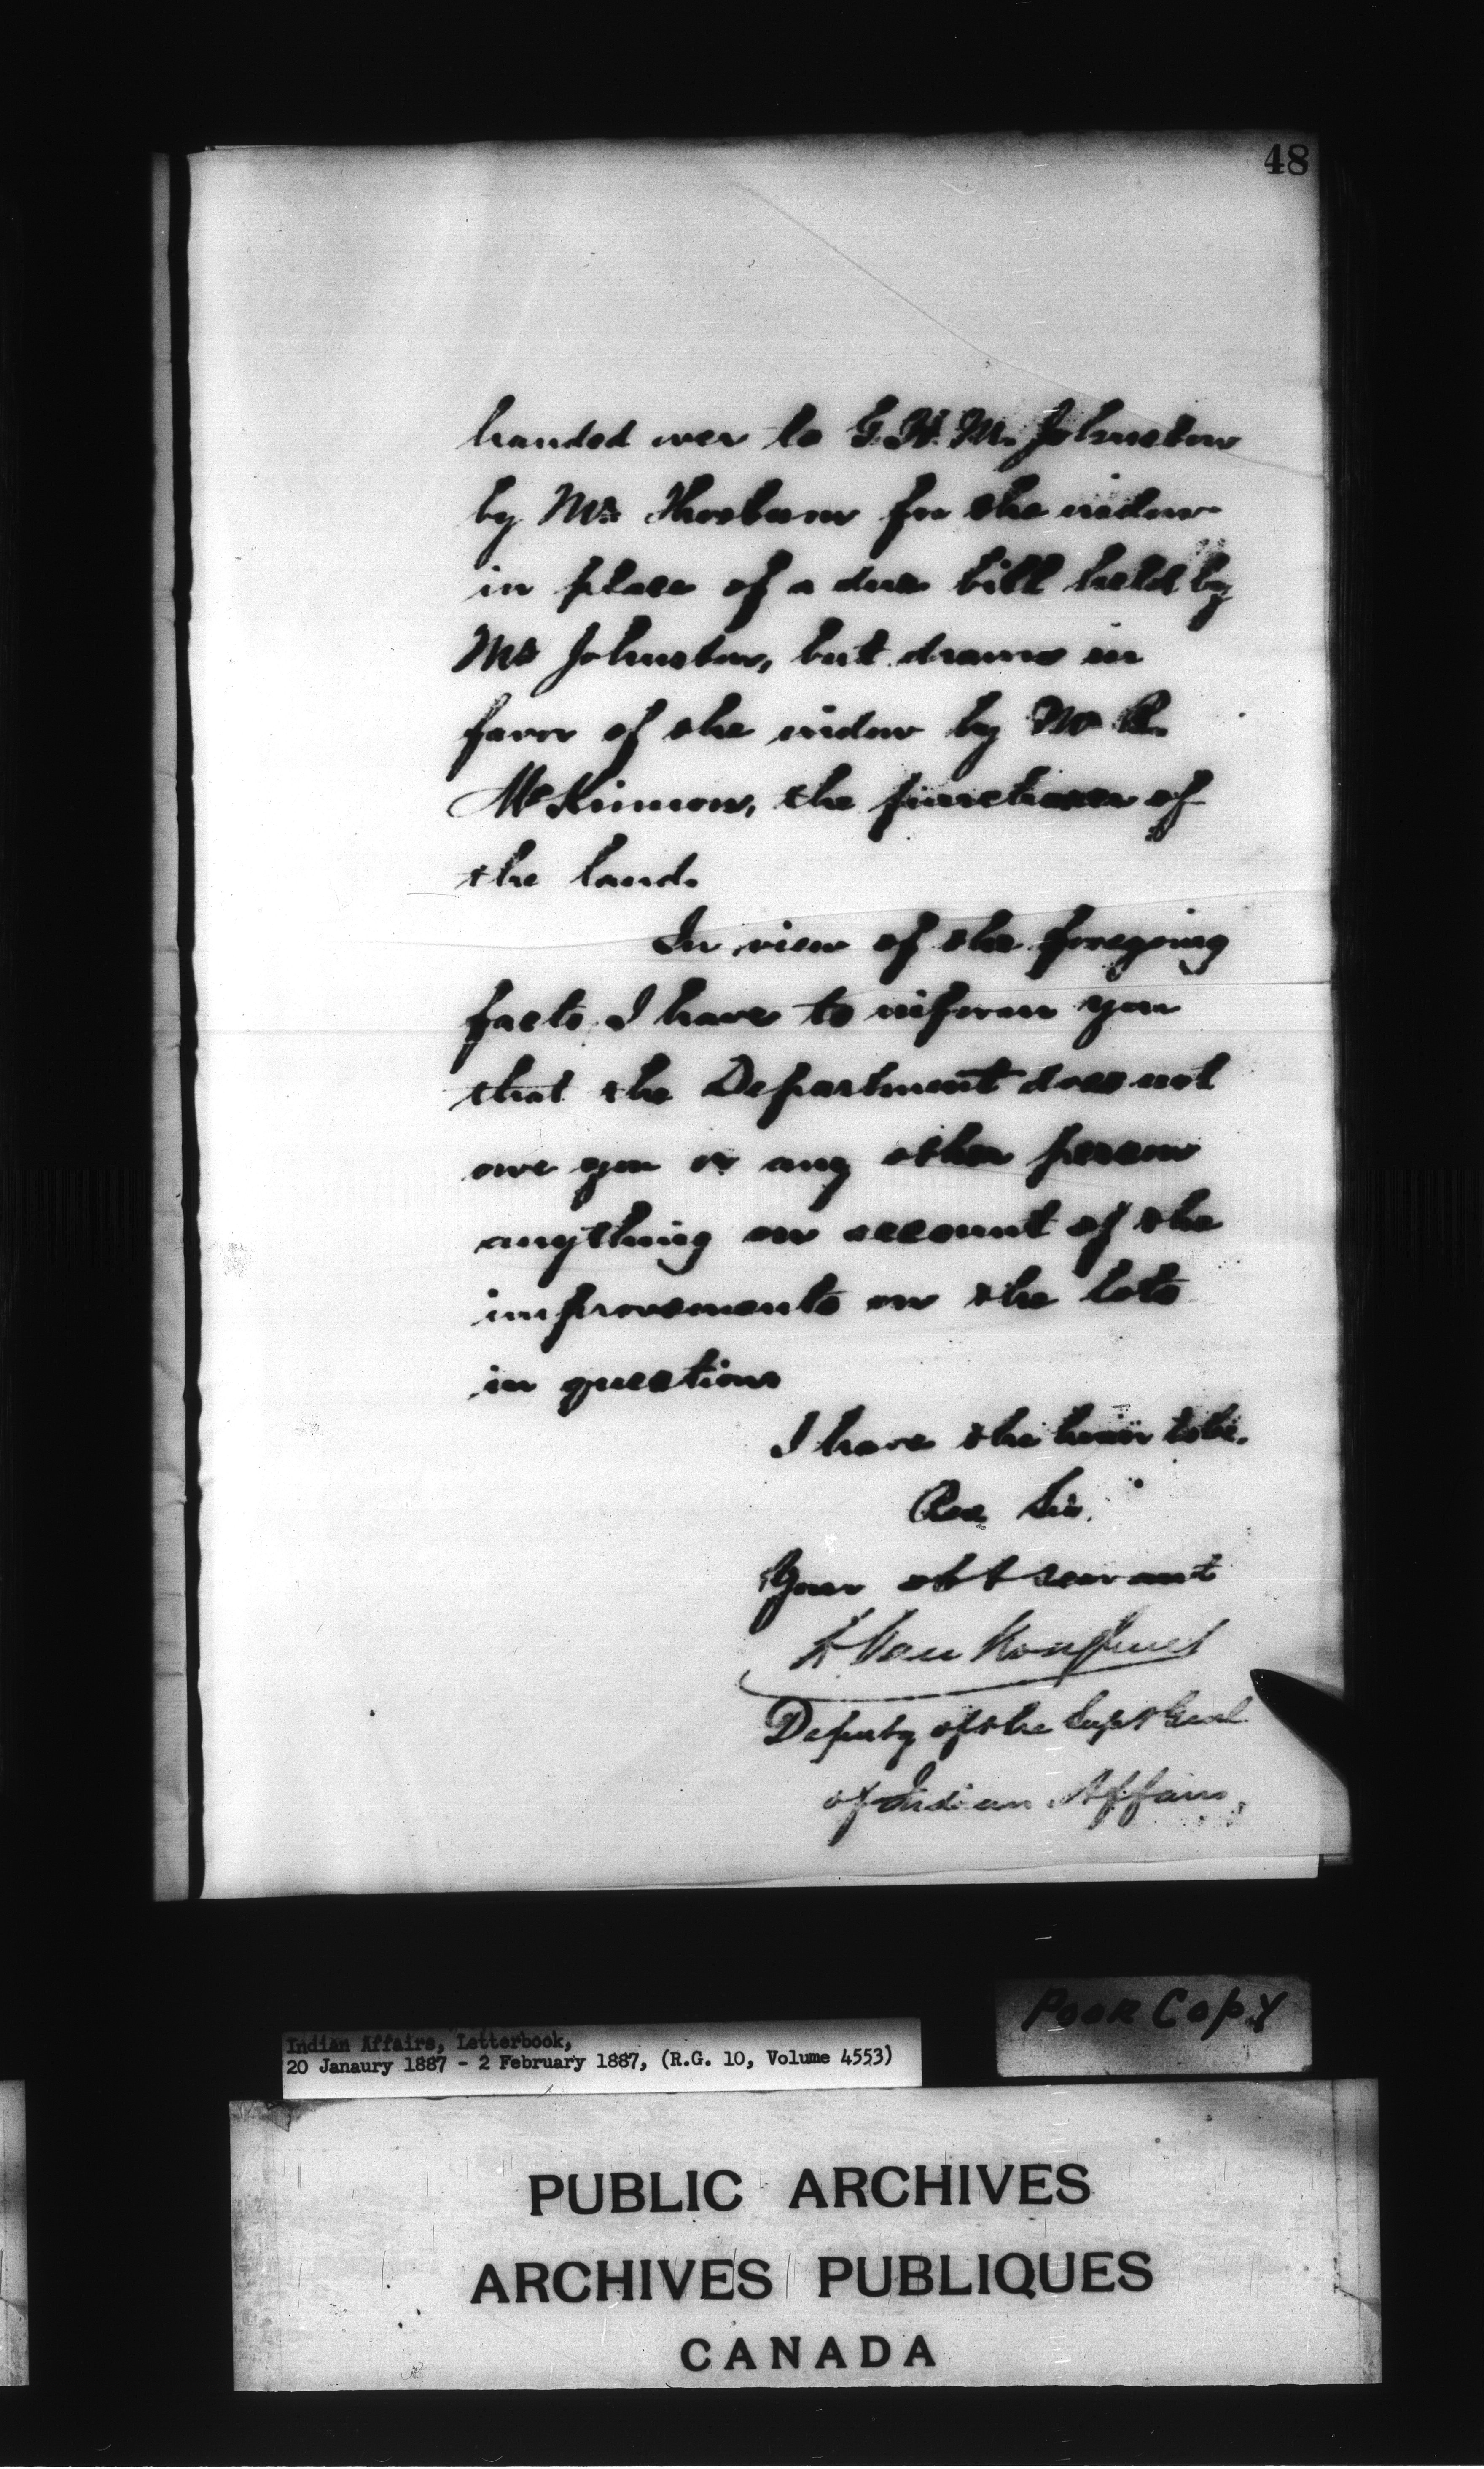 48
handed over to G. H. M. Johnston
by Mr. Thorburn for the widow
in place of a due bill held by
Mr Johnston, but drawn in
favor of the widow by Mr R.
McKinnon, the purchaser of
the land.
In view of the foregoing
facts I have to inform you
that the Department does not
owe you or any other person
anything on account of the
improvements on the lots
in question
I have the honor to be.
Rev. Sir.
Your obt servant
L. VanKoughnet
Deputy of the Supt Genl
of Indian Affairs.
POOR COPY
Indian Affairs, Letterbook,
20 Janaury 1887 - 2 February 1887, (R.G. 10, Volume 4553)
PUBLIC ARCHIVES
ARCHIVES PUBLIQUES
CANADA